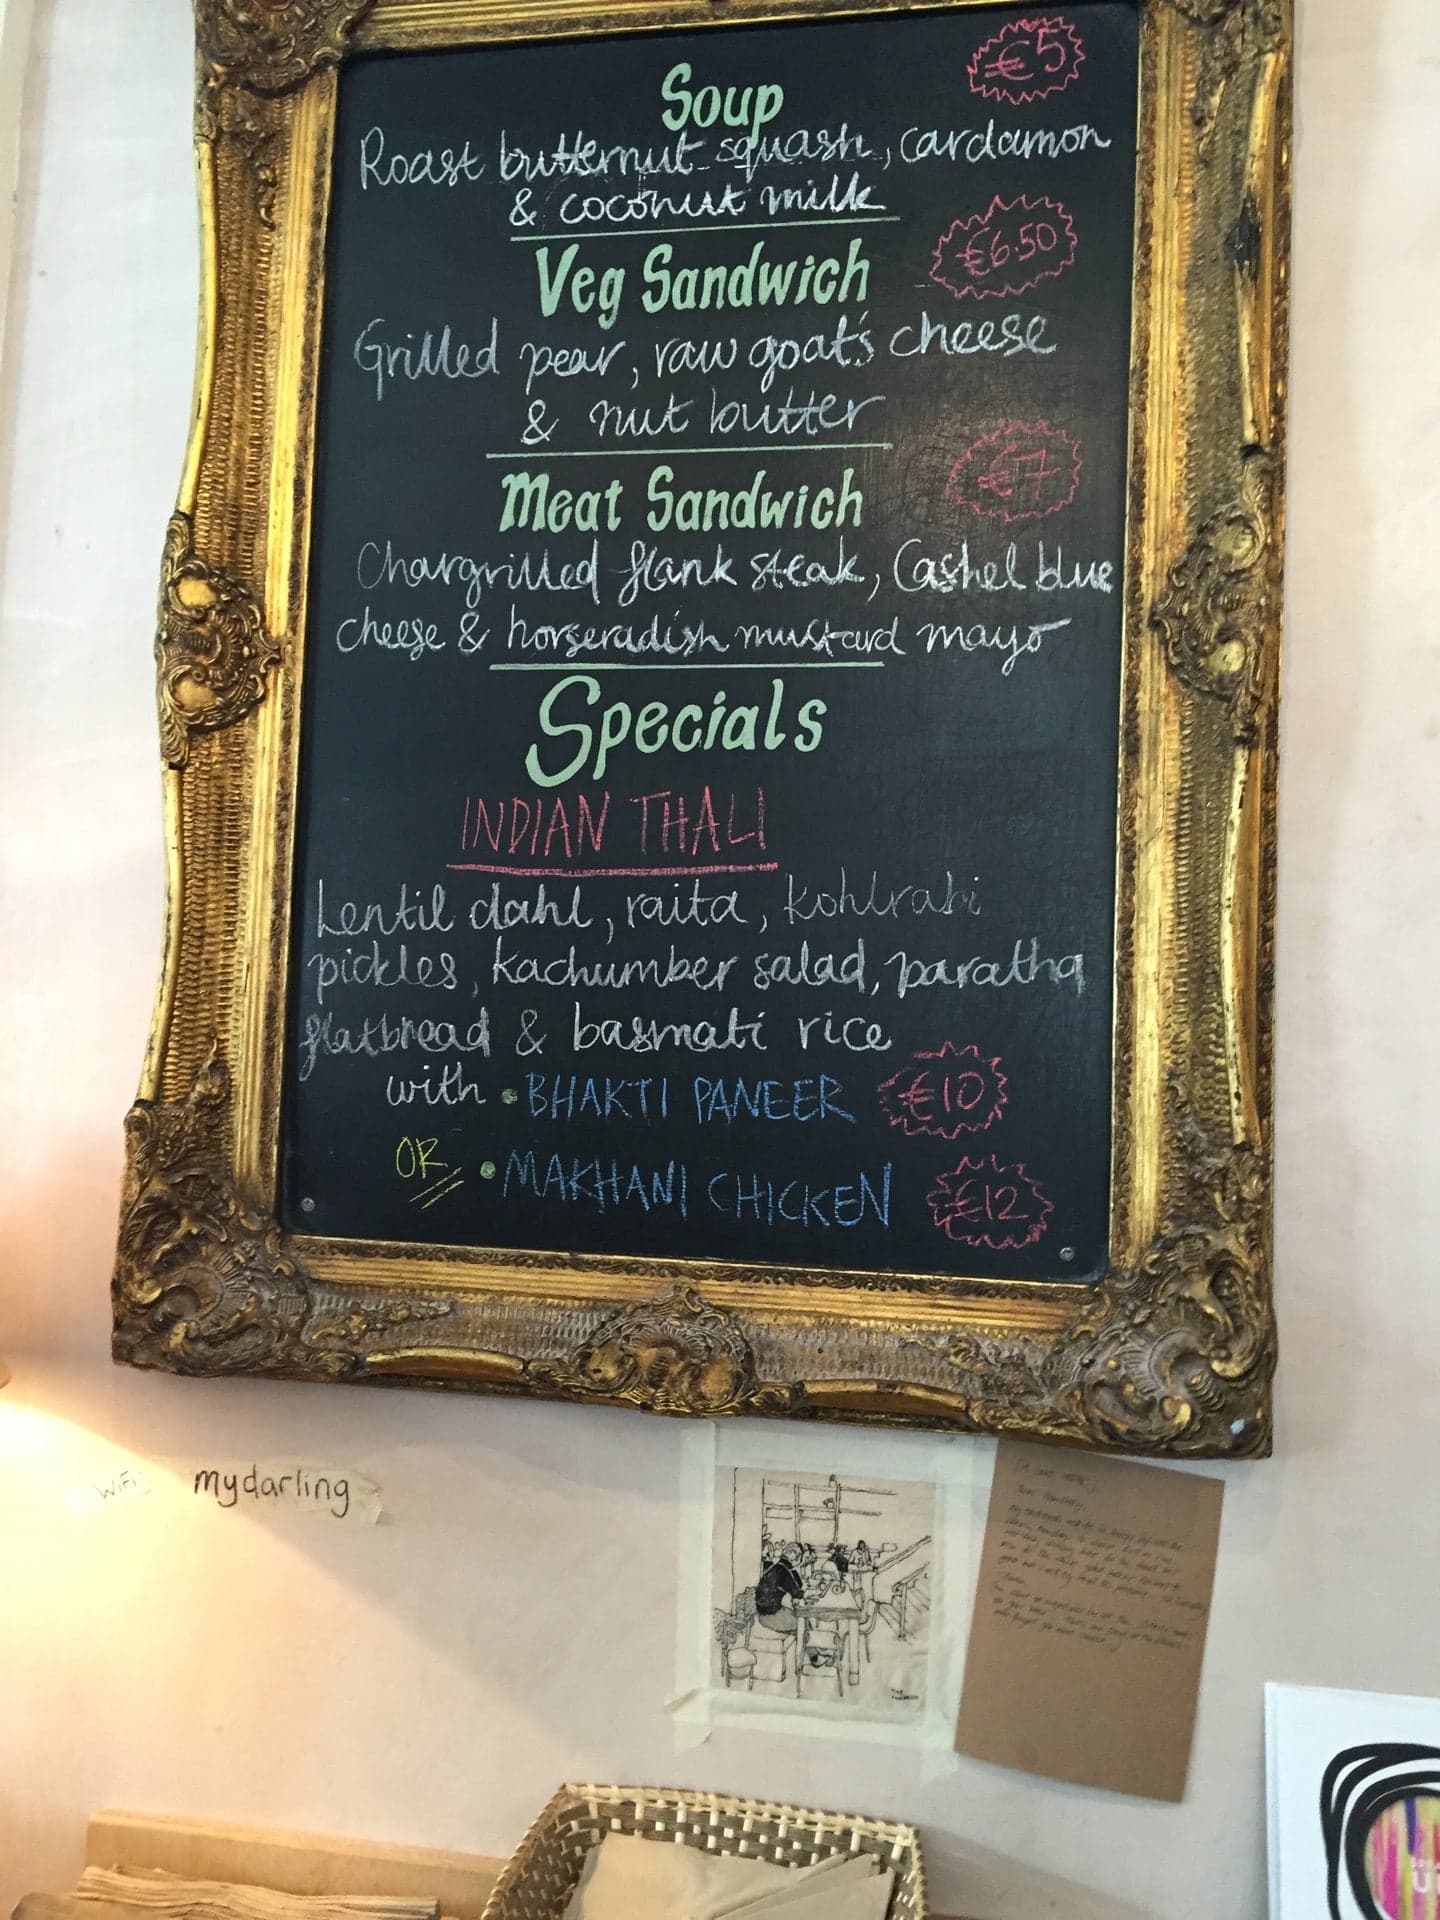 Soup €5
Roast butternut squash, cardamon
& coconut milk
Veg Sandwich €6.50
Grilled pear, raw goat's cheese
& nut butter
Meat Sandwich €7
Chargrilled flank steak, Cashel blue
cheese & horseradish mustard mayo
Specials
INDIAN THALI
Lentil dahl, raita, kohlrabi
pickles, kachumber salad, paratha
flatbread & basmati rice
with • BHAKTI PANEER €10
OR • MAKHANI CHICKEN €12
WiFi mydarling